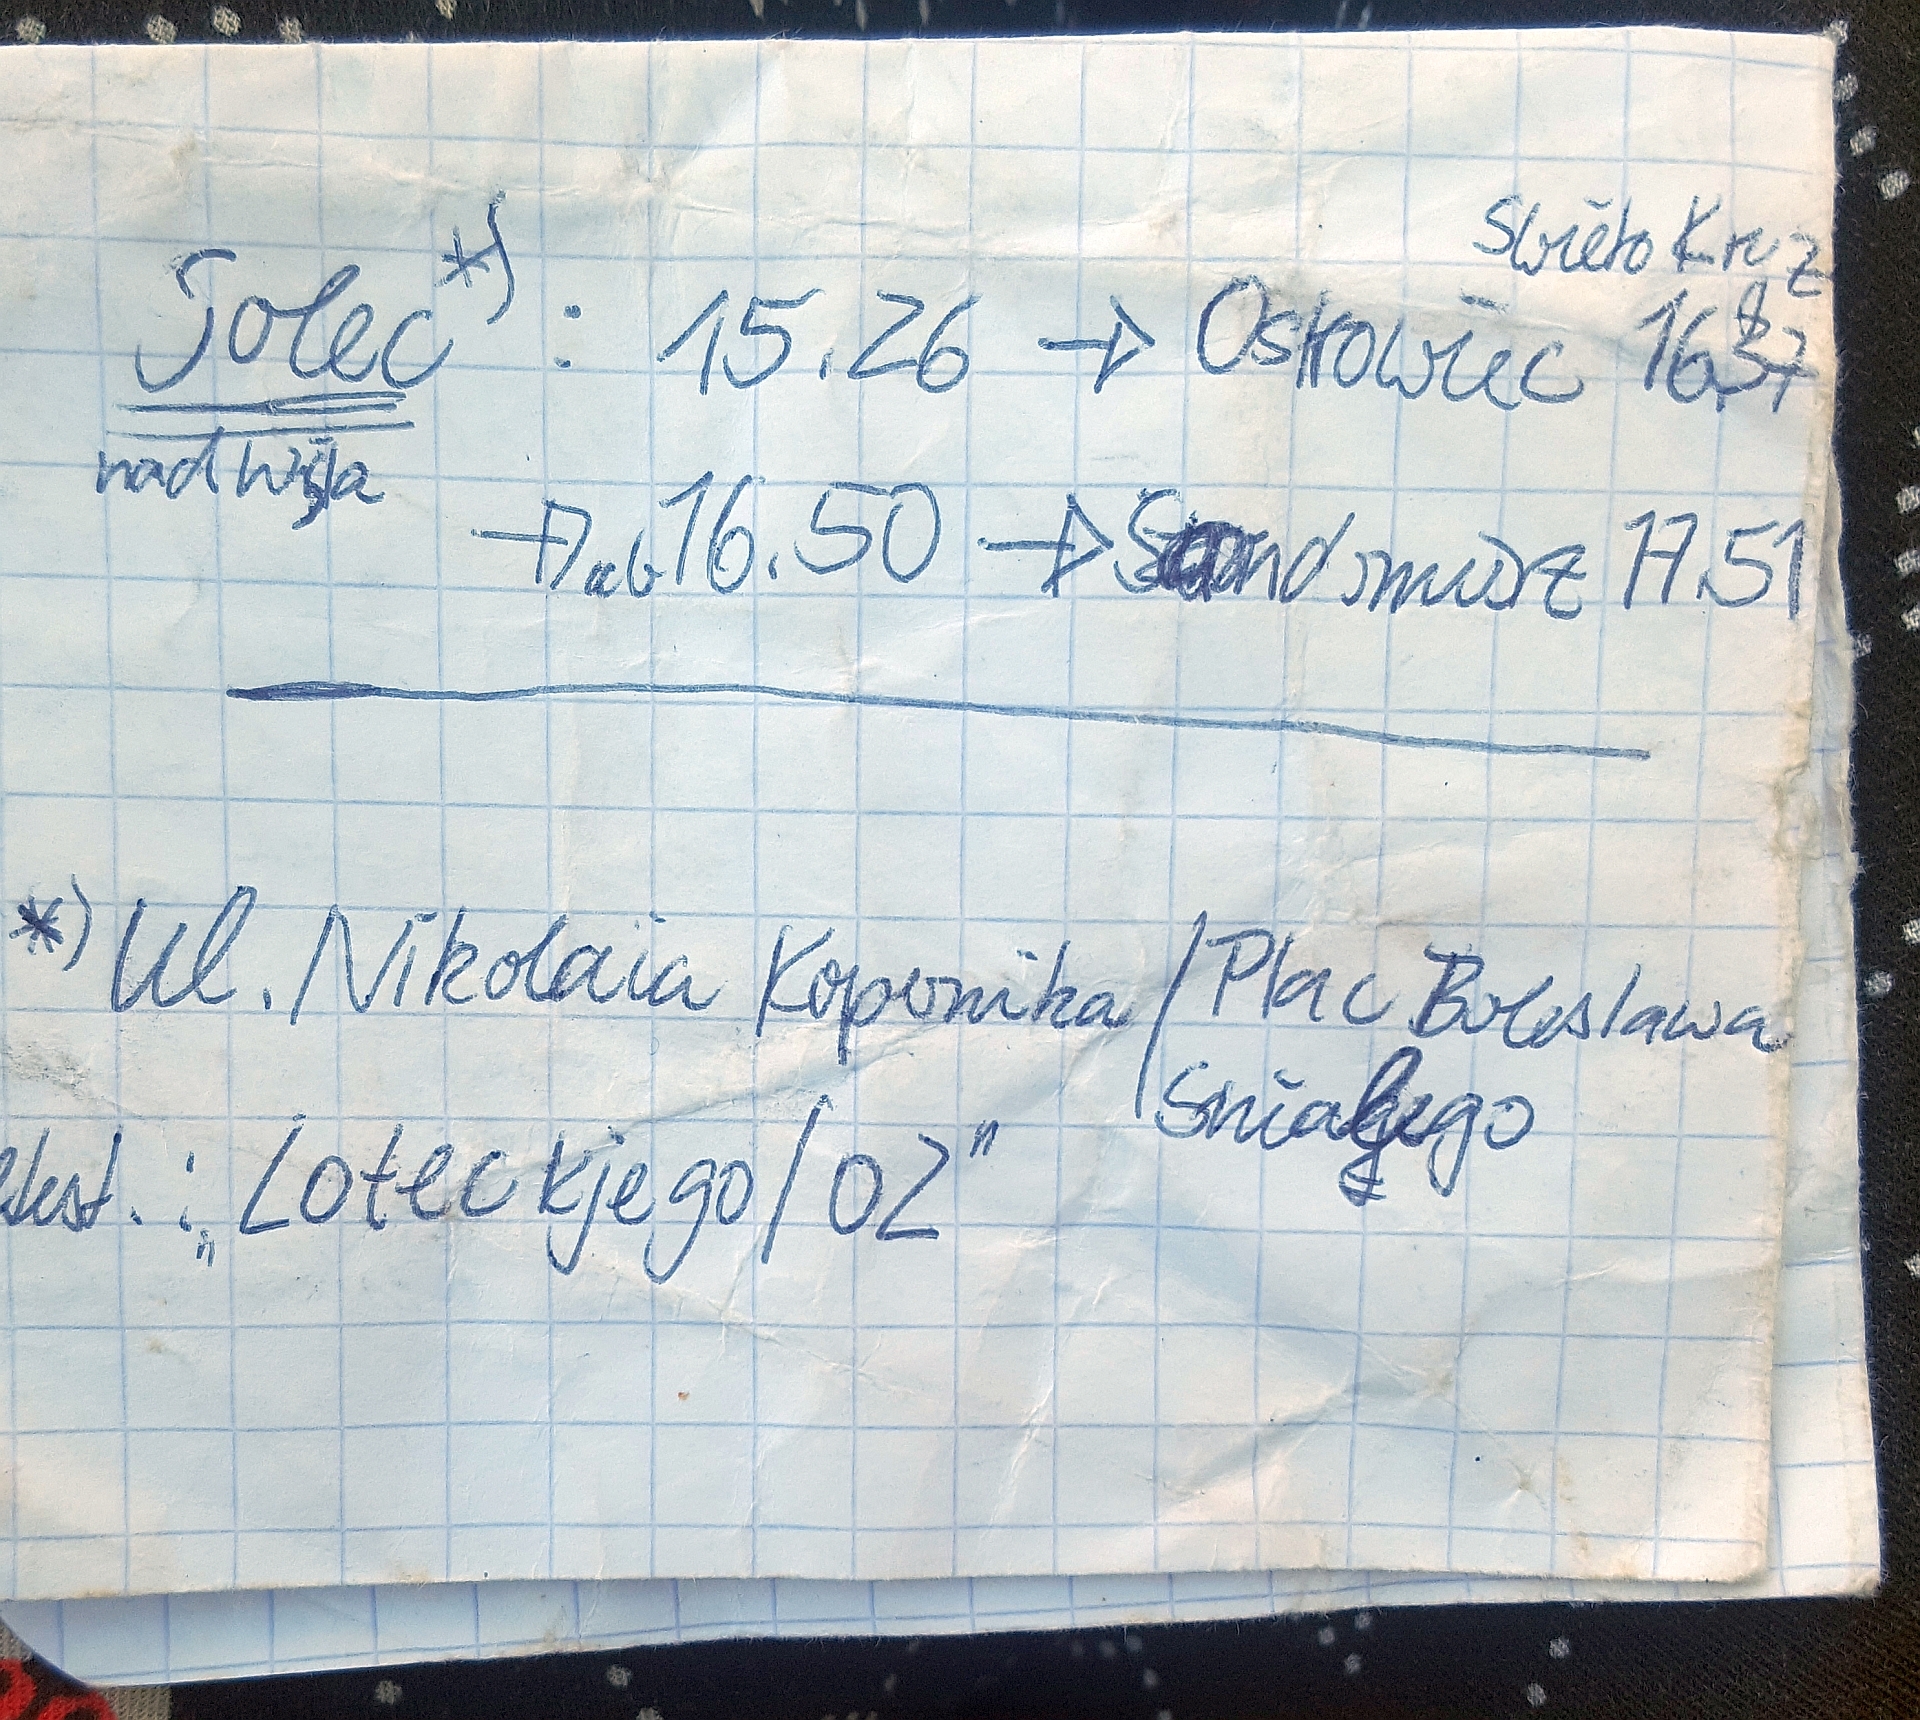 Swięto Krz
Solec *) : 15.26 → Ostrowiec 16.37
nad Wisła
→ ab 16.50 → Sandomierz 17.51
*) Ul. Nikolaia Kopernika / Plac Boleslawa
Smialego
: „Loteckjego / 02"